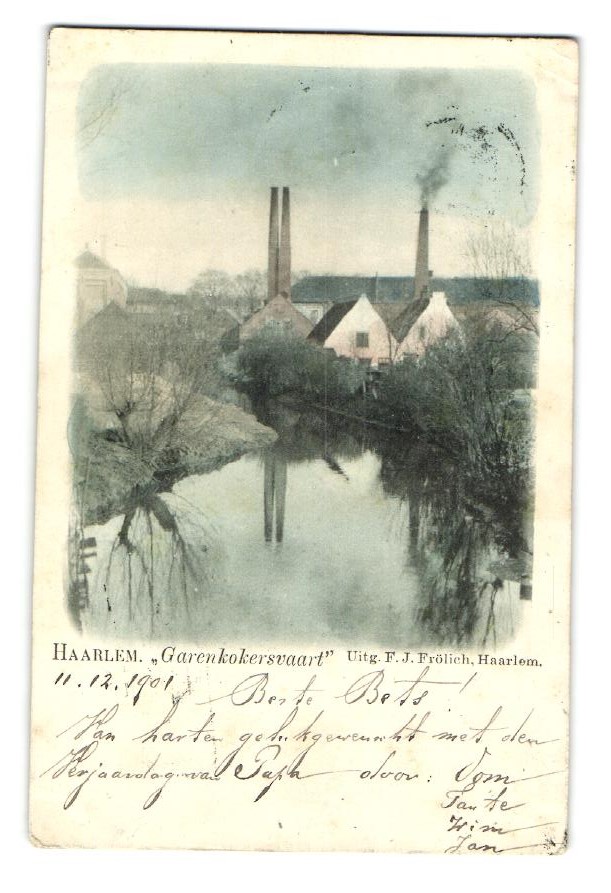 HAARLEM. „Garenkokersvaart" Uitg. F. J. Frölich, Haarlem.
11.12.1901 Beste Bets!
Van harten gelukgewenscht met den
Verjaardag van Papa door: Oom
Tante
Wim
Jan